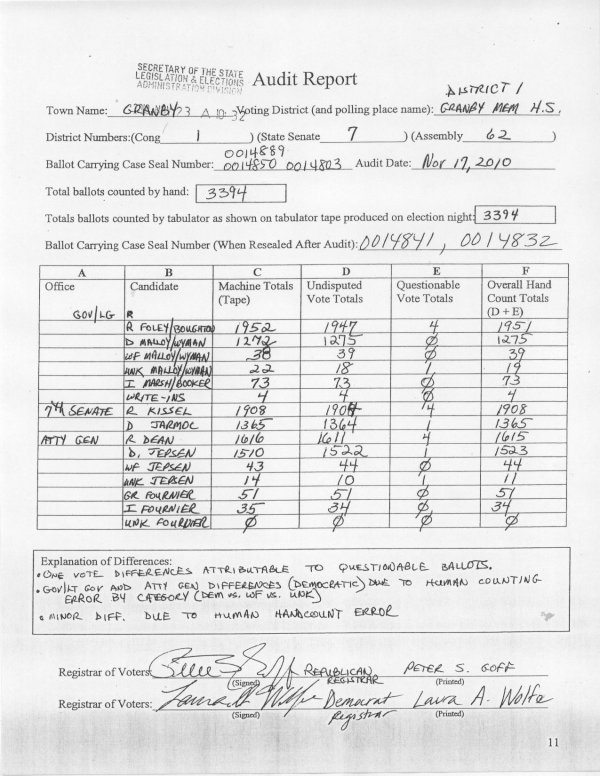 SECRETARY OF THE STATE
LEGISLATION & ELECTIONS
ADMINISTRATION DIVISION
Audit Report
DISTRICT 1
Town Name: GRANBY Voting District (and polling place name): GRANBY MEM H.S.
District Numbers:(Cong 1 ) (State Senate 7 ) (Assembly 62 )
0014889
Ballot Carrying Case Seal Number: 0014850 0014803 Audit Date: Nov 17, 2010
Total ballots counted by hand: 3394
Totals ballots counted by tabulator as shown on tabulator tape produced on election night: 3394
Ballot Carrying Case Seal Number (When Resealed After Audit): 0014841, 0014832
A B C D E F
Office Candidate Machine Totals (Tape) Undisputed Vote Totals Questionable Vote Totals Overall Hand Count Totals (D + E)
GOV/LG R
R FOLEY/BOUGHTON 1952 1947 4 1951
D MALLOY/WYMAN 1272 1275 Ø 1275
WF MALLOY/WYMAN 38 39 Ø 39
UNK MALLOY/WYMAN 22 18 1 19
I MARSH/BOOKER 73 73 Ø 73
WRITE-INS 4 4 Ø 4
7TH SENATE R KISSEL 1908 1904 4 1908
D JARMOC 1365 1364 1 1365
ATTY GEN R DEAN 1616 1611 4 1615
D, JEPSEN 1510 1522 1 1523
WF JEPSEN 43 44 Ø 44
UNK JEPSEN 14 10 1 11
GR FOURNIER 51 51 Ø 51
I FOURNIER 35 34 Ø 34
UNK FOURNIER Ø Ø Ø Ø
Explanation of Differences:
• ONE VOTE DIFFERENCES ATTRIBUTABLE TO QUESTIONABLE BALLOTS.
• GOV/LT GOV AND ATTY GEN DIFFERENCES (DEMOCRATIC) DUE TO HUMAN COUNTING
ERROR BY CATEGORY (DEM vs. WF vs. UNK)
• MINOR DIFF. DUE TO HUMAN HANDCOUNT ERROR
Registrar of Voters: REPUBLICAN PETER S. GOFF
(Signed) REGISTRAR (Printed)
Registrar of Voters: Laura A Wolfe Democrat Laura A. Wolfe
(Signed) Registrar (Printed)
11